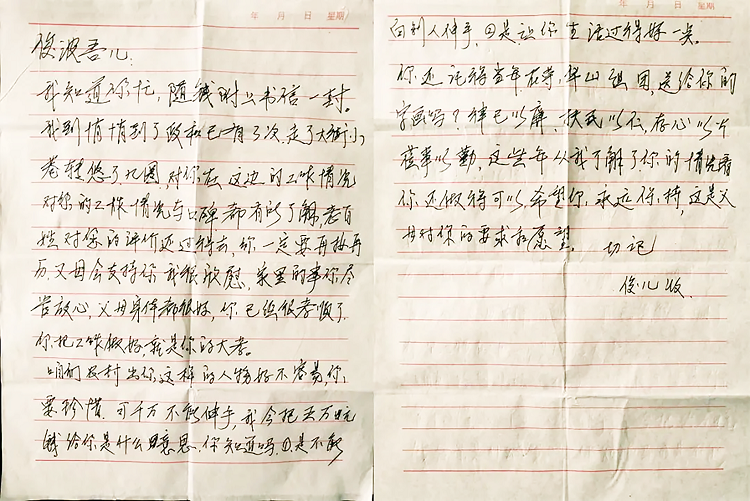 年 月 日 星期
俊波吾儿:
我知道你忙，随钱附上书信一封。
我到悄悄到了政和已有了次,走了大街小
巷转悠了几圈,对你在这边的工作情况
对你的工作情况与口碑都有所了解,老百
姓对你的评价还过得去,你一定要再接再
历,父母会支持你我很欣慰,家里的事你尽
管放心,父母身体都很好,你已经很孝顺了
你把工作做好就是你的大孝。
咱们农村出你这样的人物好不容易,你
要珍惜,可千万不能伸手,我今把五万元
钱给你是什么意思,你知道吗,①是不能
年 月 日 星期
向别人伸手,②是让你生活过得好一点。
你还记得当年在 华山 送给你的
字画吗?律己以廉,抚民以仁,存心以公
莅事以勤,这些年从我了解了你的情况看
你还做得可以,希望你永远保持,这是父
母对你的要求和愿望。 切记
俊儿收.